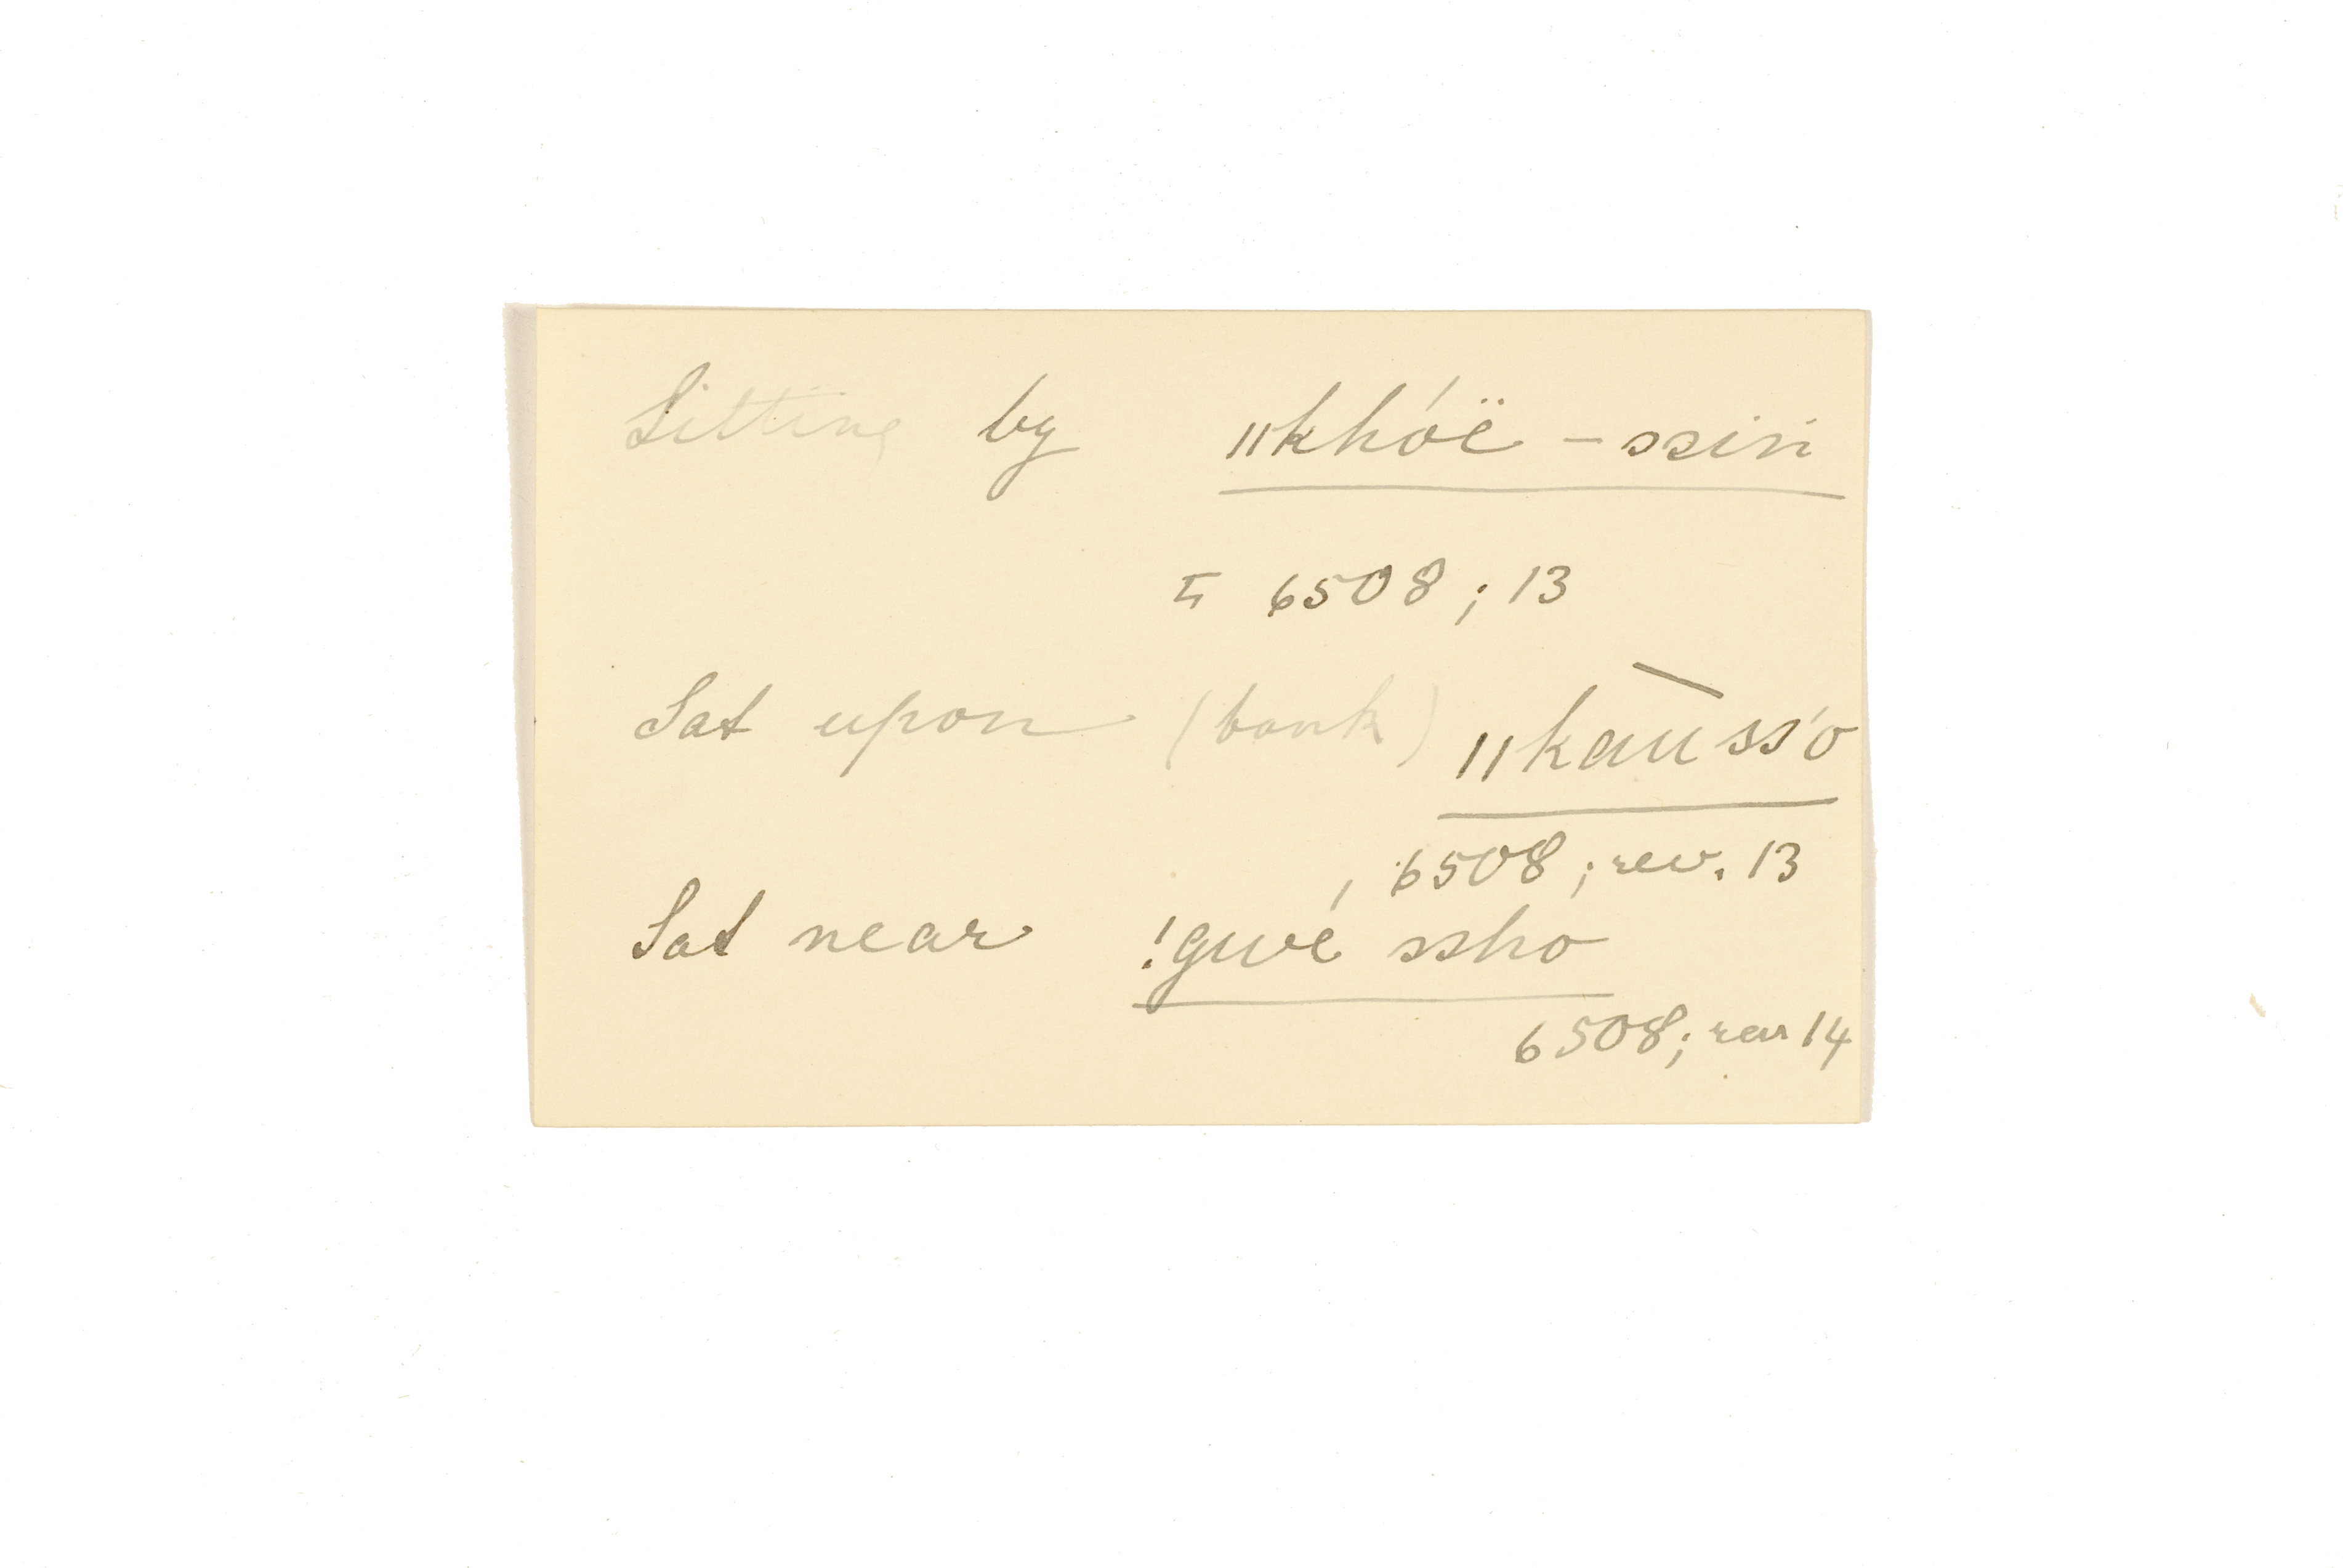 Sitting by ||khóë - ssin
I 6508 ; 13
Sat upon (bank) ||kau ss'o
6508 ; rev. 13
Sat near !gwé ssho
6508; rev 14